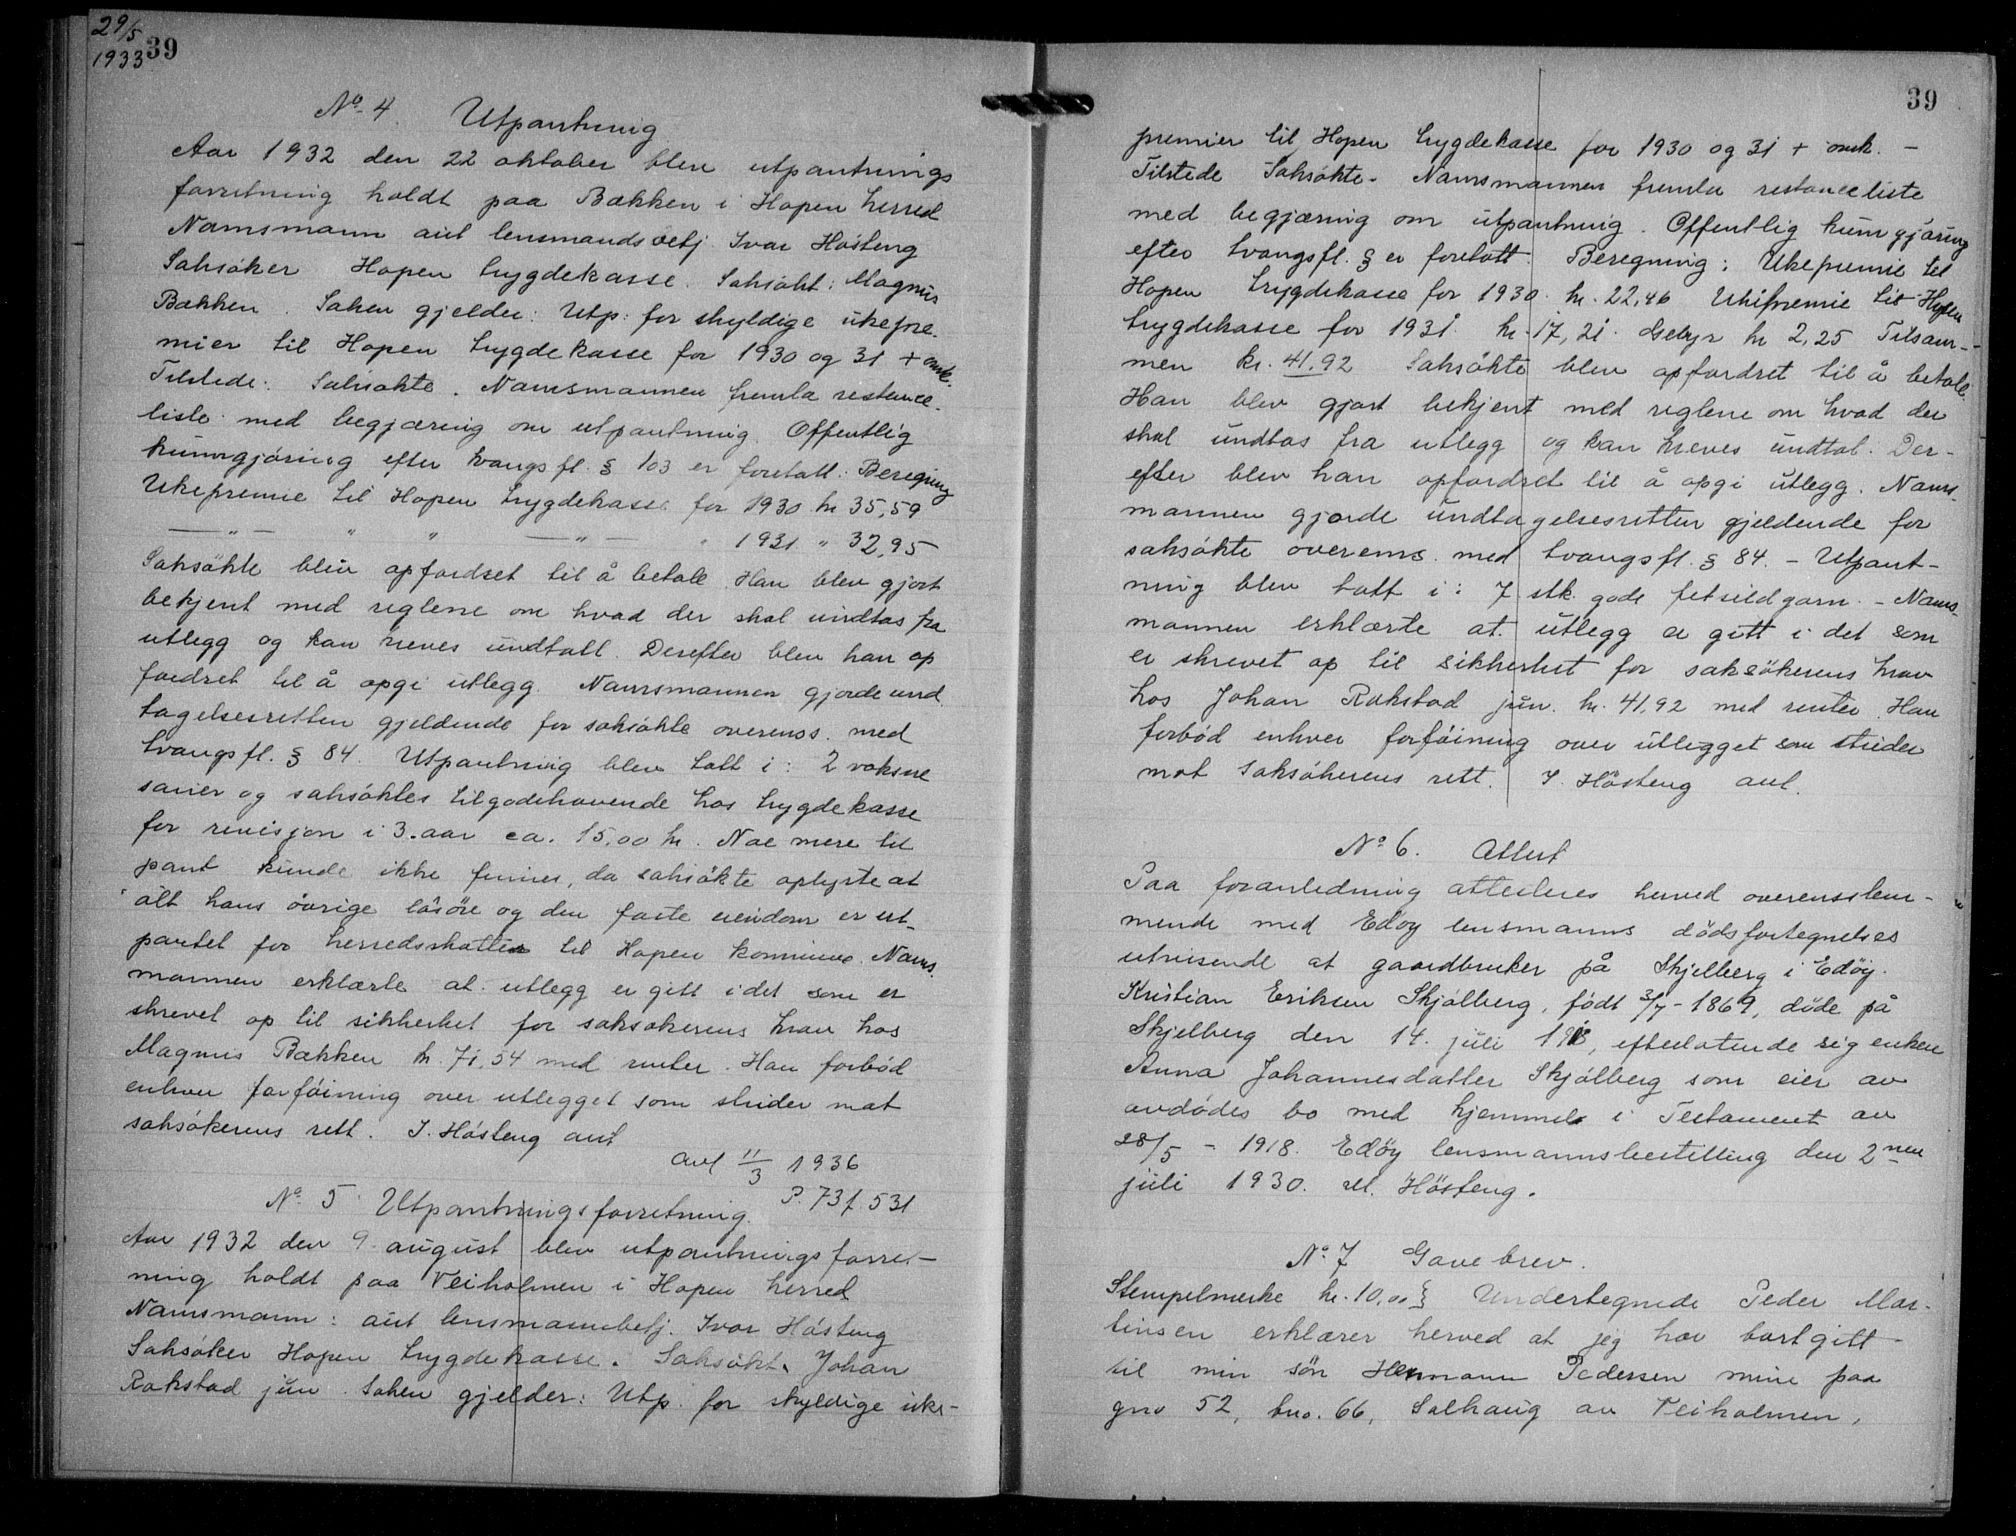 29/5
1933
39
No 4. Utpantning
Aar 1932 den 22 oktober blev utpantnings
forretning holdt paa Bækken i Hopen herred
Namsmann aut lensmandsbetj Ivar Hösteng
Saksöker Hopen trygdekasse. Saksökt: Magnus
Bækken. Saken gjelder: Utp: for skyldige ukepre-
mier til Hopen trygdekasse for 1930 og 31 + omk.
Tilstede: Saksökte. Namsmannen fremla restance-
liste med begjæring om utpantning. Offentlig
kunngjöring efter tvangsfl. § 103 er foretatt. Beregning
Ukepremie til Hopen trygdekasse for 1930 kr 35,59
— " — " " — " — " 1931 " 32,95
Saksökte blev opfordret til å betale. Han blev gjort
bekjent med reglene om hvad der skal undtas fra
utlegg og kan kreves undtatt. Derefter blev han op
fordret til å opgi utlegg. Namsmannen gjorde und
tagelsesretten gjeldende for saksökte overenss. med
tvangsfl. § 84. Utpantning blev tatt i: 2 voksne
sauer og saksöktes tilgodehavende hos trygdekasse
for revisjon i 3. aar ca. 15,00 kr. Noe mere til
pant kunde ikke finnes, da saksökte oplyste at
alt hans övrige lösöre og den faste eiendom er ut-
pantet for herredsskatter til Hopen kommune. Nams-
mannen erklærte at utlegg er gitt i det som er
skrevet op til sikkerhet for saksökerens krav hos
Magnus Bækken kr. 71,54 med renter. Han forböd
enhver forföining over utlegget som strider mot
saksökerens rett. I. Hösteng aut
Avl 11/3 1936
P. 73 f. 531
No 5 Utpantningsforretning.
Aar 1932 den 9 august blev utpantningsforret-
ning holdt paa Veiholmen i Hopen herred
Namsmann: aut lensmannbetj. Ivar Hösteng
Saksöker Hopen trygdekasse. Saksökt. Johan
Rokstad jun. Saken gjelder: Utp. for skyldige uke-
39
premier til Hopen trygdekasse for 1930 og 31 + omk. -
Tilstede Saksökte. Namsmannen fremla restanceliste
med begjæring om utpantning. Offentlig kunngjöring
efter tvangsfl. § er foretatt. Beregning: Ukepremie til
Hopen trygdekasse for 1930. kr. 22,46 Ukepremie til Hopen
trygdekasse for 1931 kr. 17,21. Gebyr kr 2,25 Tilsam-
men kr. 41.92 Saksökte blev opfordret til å betale.
Han blev gjort bekjent med reglene om hvad der
skal undtas fra utlegg og kan kreves undtat. Der-
efter blev han opfordret til å opgi utlegg. Nams-
mannen gjorde undtagelsesretten gjeldende for
saksökte overenss. med tvangsfl. § 84. - Utpant-
ning blev tatt i: 7 stk. gode fetsildgarn. - Nams-
mannen erklærte at utlegg er gitt i det som
er skrevet op til sikkerhet for saksökerens krav
hos Johan Rokstad jun. kr. 41,92 med renter. Han
forböd enhver forföining over utlegget som strider
mot Saksökerens rett. I. Hösteng aut.
No 6. Attest
Paa foranledning attesteres herved overensstem-
mende med Edöy lensmanns dödsfortegnelses
utvisende at gaardbruker på Skjelberg i Edöy.
Kristian Eriksen Skjölberg, födt 3/7 - 1869, döde på
Skjelberg den 14. juli 1918, efterlatende sig enken
Anna Johannesdatter Skjölberg som eier av
avdödes bo med hjemmel i Testament av
28/5 - 1918. Edöy lensmannsbestilling den 2nen
juli 1930. Hösteng.
No 7 Gavebrev.
Stempelmerke kr. 10,00 } Undertegnede Peder Mar-
tinsen erklærer herved at jeg har bortgitt
til min sön Hermann Pedersen mine paa
gno 52, bno. 66, Solhaug av Veiholmen,